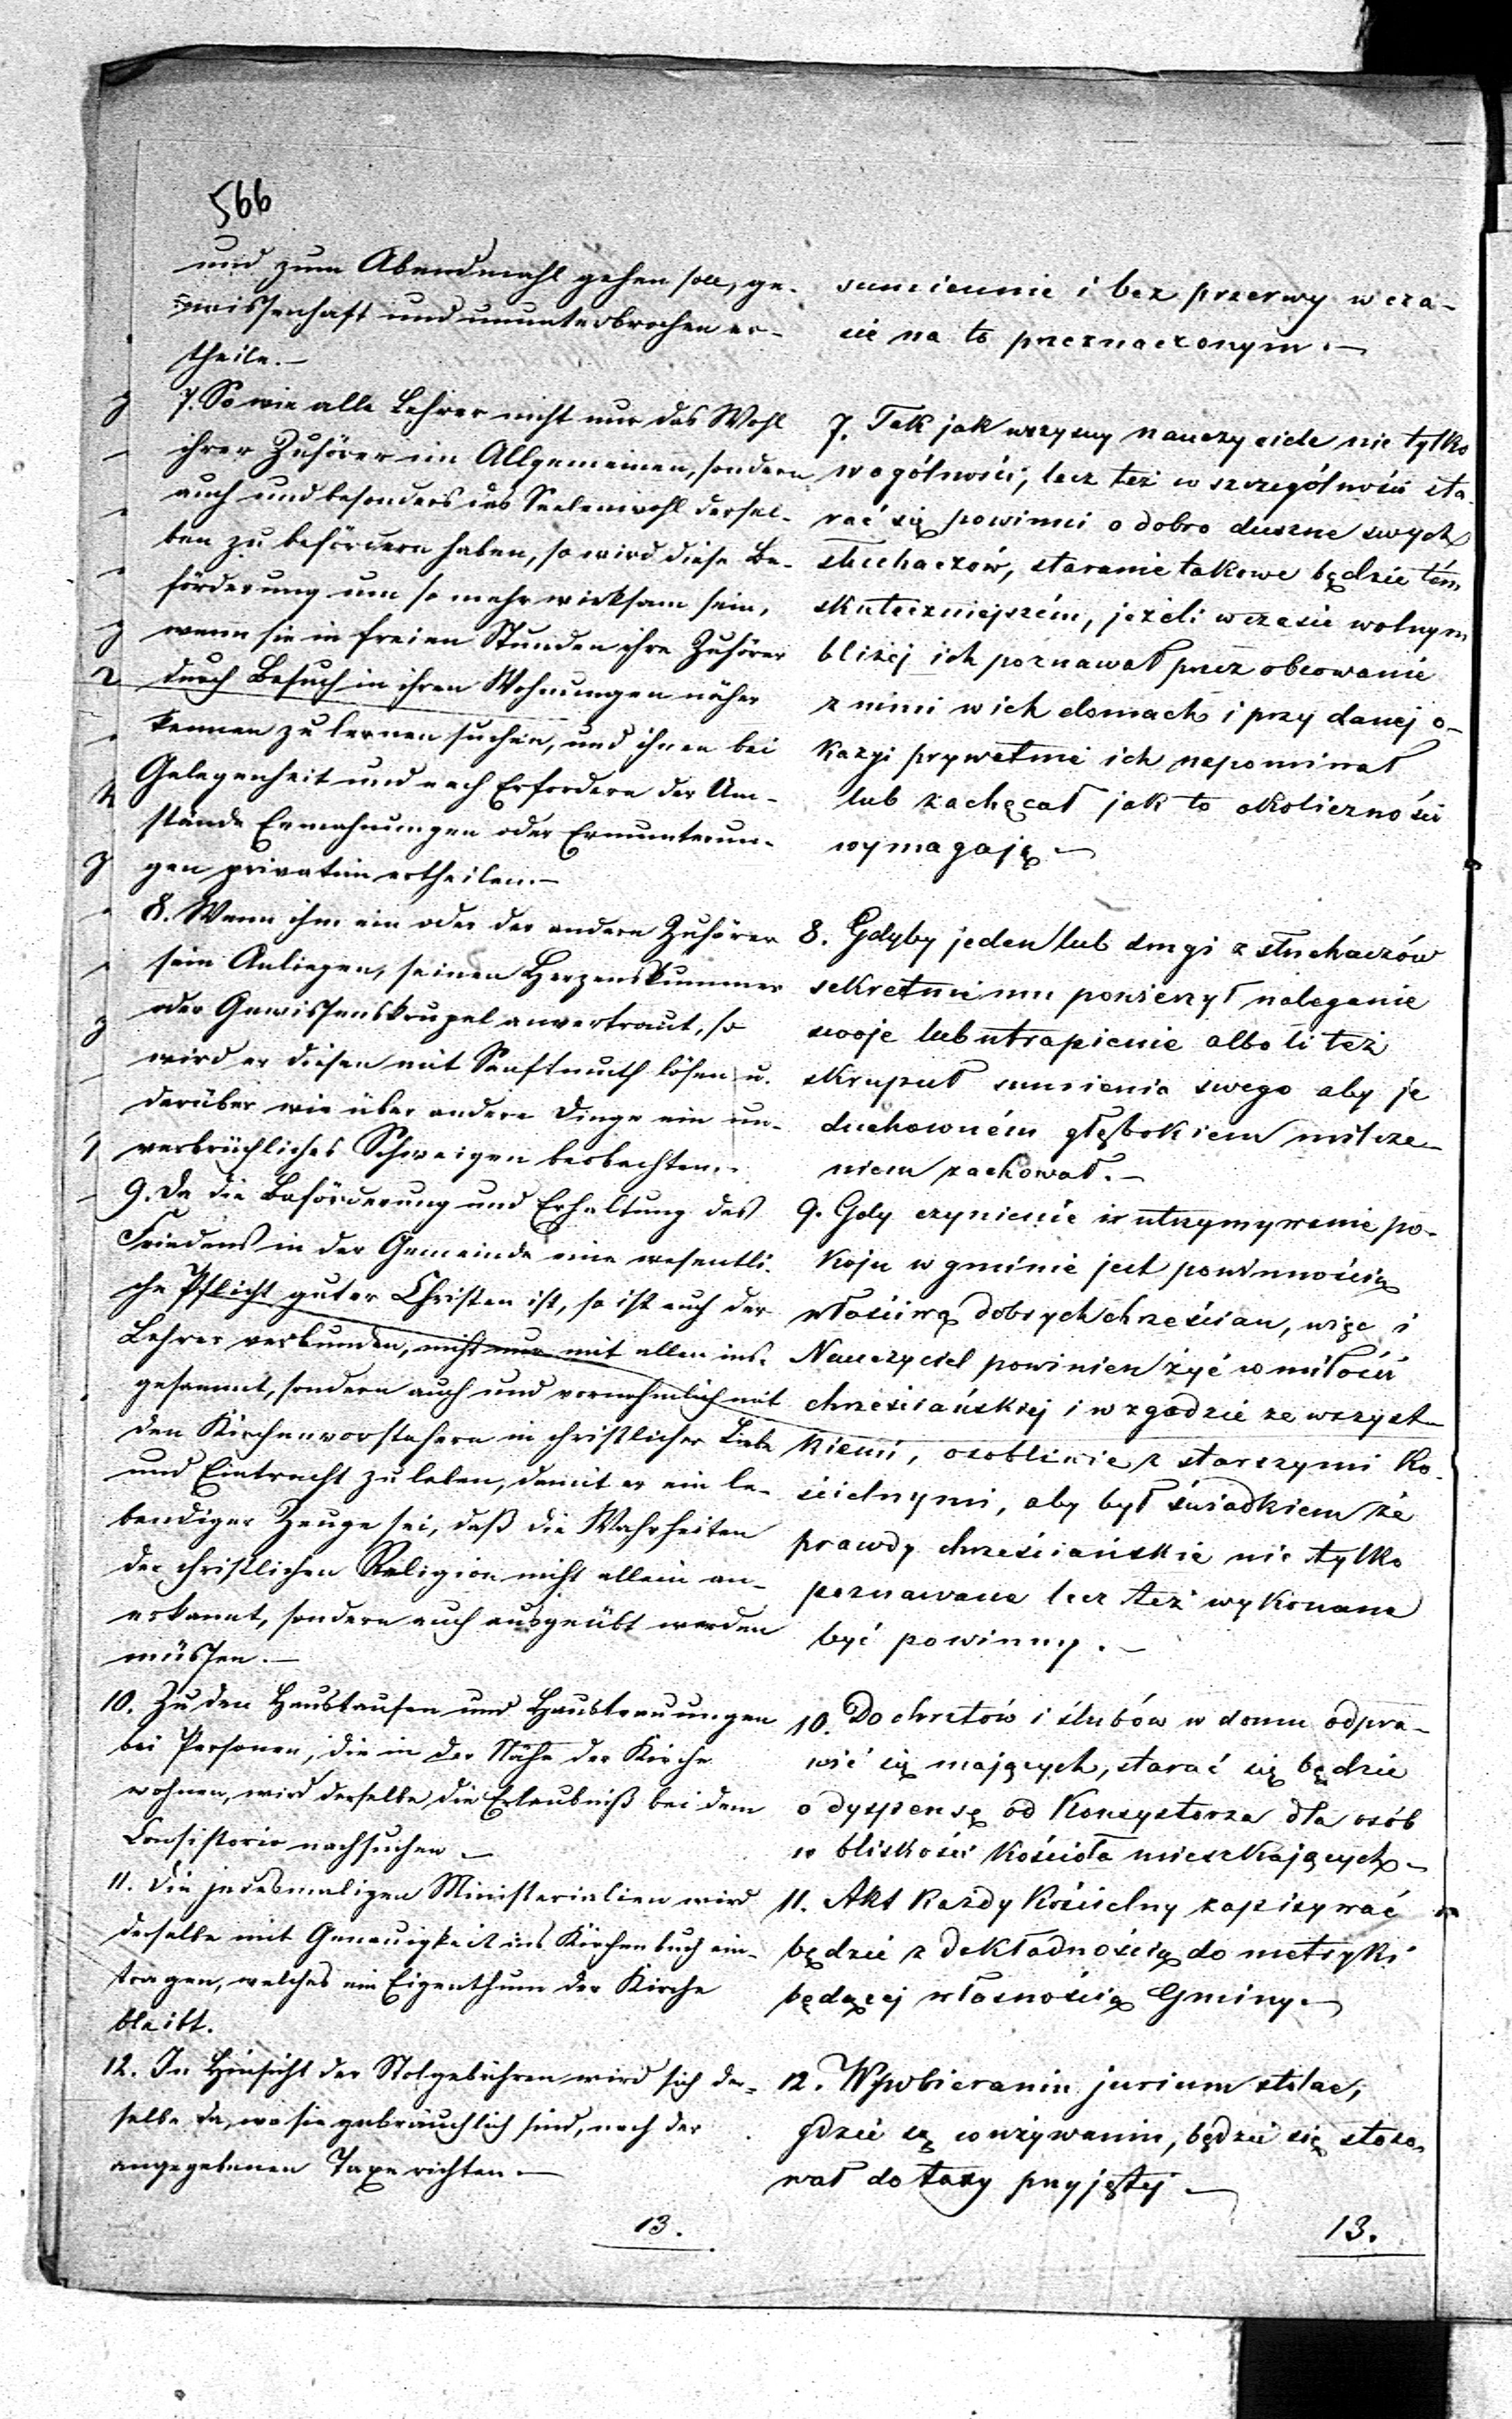 566
und zum Abendmahl gehen soll, ge-
wissenhaft und ununterbrochen er-
theile.—
7. So wie alle Lehrer nicht nur das Wohl
ihrer Zuhörer im Allgemeinen, sondern
auch und besonders das Seelenwohl dersel-
ben zu befördern haben, so wird diese Be-
förderung um so mehr wirksam sein,
wenn sie in freien Stunden ihre Zuhörer
durch Besuch in ihren Wohnungen näher
kennen zu lernen suchen, und ihnen bei
Gelegenheit und nach Erfordern der Um-
stände Ermahnungen oder Ermunterun-
gen privatim ertheilen.—
8. Wenn ihm ein oder der andere Zuhörer
sein Anliegen, seinen Herzenskummer
oder Gewissensskrupel anvertraut, so
wird er diesen mit Sanftmuth lösen u.
darüber wie über andere Dinge ein un-
verbrüchliches Schweigen beobachten.
9. Da die Beförderung und Erhaltung des
Friedens in der Gemeinde eine wesentli-
che Pflicht guter Christen ist, so ist auch der
Lehrer verbunden, nicht nur mit allen ins-
gesammt, sondern auch und vornehmlich mit
den Kirchenvorstehern in christlicher Liebe
und Eintracht zu leben, damit er ein le-
bendiger Zeuge sei, daß die Wahrheiten
der christlichen Religion nicht allein an-
erkannt, sondern auch ausgeübt werden
müssen.—
10. Zu den Haustaufen und Haustrauungen
bei Personen, die in der Nähe der Kirche
wohnen, wird derselbe die Erlaubniß bei dem
Consistorio nachsuchen.—
11. Die jedesmaligen Ministerialien wird
derselbe mit Genauigkeit ins Kirchenbuch ein-
tragen, welches ein Eigenthum der Kirche
bleibt.
12. In Hinsicht der Stolgebühren wird sich der-
selbe da, wo sie gebräuchlich sind, nach der
angegebenen Taxe richten.—
13.
sumiennie i bez przerwy w cza-
sie na to przeznaczonym.—
7. Tak jak wszyscy nauczyciele nie tylko
w ogólności, lecz też w szczególności sta-
rać się powinni o dobro duszne swych
słuchaczów, staranie takowe będzie tém
skuteczniejszém, jeżeli w czasie wolnym
bliżej ich poznawał przez obcowanie
z nimi w ich domach i przy danej o-
kazyi prywatnie ich napominał
lub zachęcał jak to okoliczności
wymagają.—
8. Gdyby jeden lub drugi z słuchaczów
sekretnie mu powierzył naleganie
swoje lub utrapienie albo li też
skrupuł sumienia swego aby je
duchowném głębokiem milcze-
niem zachował.—
9. Gdy czynienie i utrzymywanie po-
koju w gminie jest powinnością
właściwą dobrych chrześcian, więc i
Nauczyciel powinien żyć w miłości
chrześciańskiej i w zgodzie ze wszyst-
kiemi, osobliwie z starszymi ko-
ścielnymi, aby był świadkiem że
prawdy chrześciańskie nie tylko
poznawane lecz też wykonane
być powinny.—
10. Do chrztów i ślubów w domu odpra-
wić się mających, starać się będzie
o dyspensę od Konsystorza dla osób
w bliskości kościoła mieszkających.—
11. Akt każdy kościelny zapisywać
będzie z dokładnością do metryki
będącej własnością Gminy.—
12. W pobieraniu jurium stolae,
gdzie są w używaniu, będzie się stoso-
wał do taxy przyjętej.—
13.